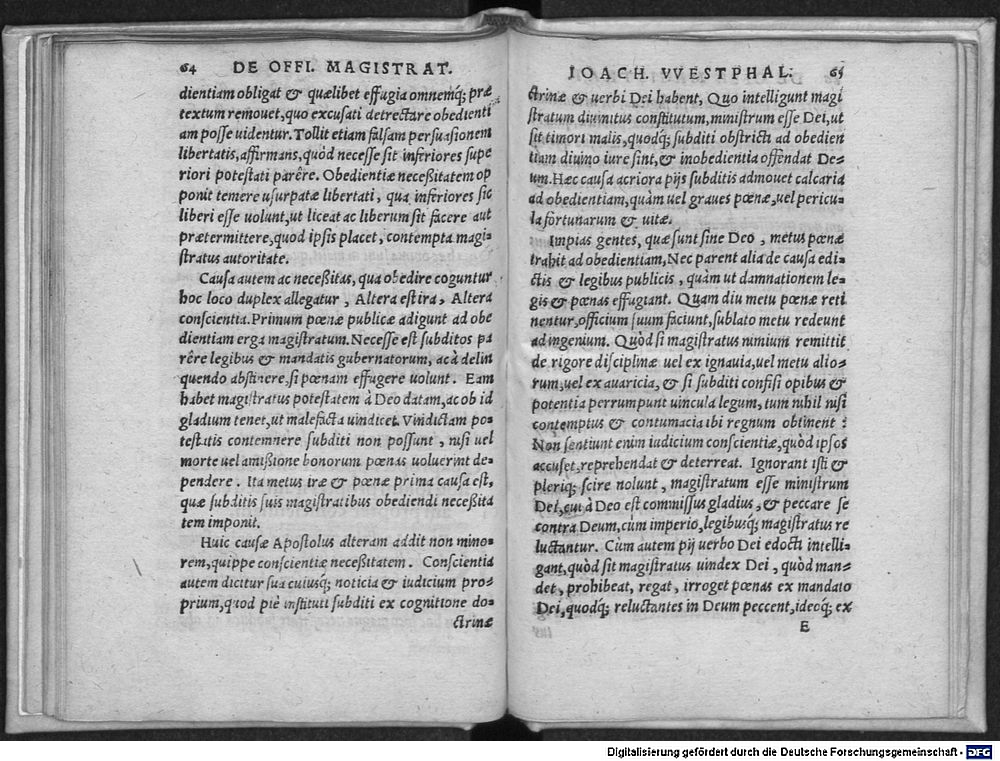 64 DE OFFI. MAGISTRAT.
dientiam obligat & quælibet effugia omnemq́; præ
textum remouet, quo excusati detrectare obedienti
am posse uidentur. Tollit etiam falsam persuasionem
libertatis, affirmans, quòd necesse sit inferiores supe
riori potestati parêre. Obedientiæ neceßitatem op
ponit temere usurpatæ libertati, qua inferiores sic
liberi esse uolunt, ut liceat ac liberum sit facere aut
prætermittere, quod ipsis placet, contempta magi=
stratus autoritate.
Causa autem ac neceßitas, qua obedire coguntur
hoc loco duplex allegatur, Altera est ira, Altera
conscientia. Primum pœnæ publicæ adigunt ad obe
dientiam erga magistratum. Necesse est subditos pa
rêre legibus & mandatis gubernatorum, ac à delin
quendo abstinere, si pœnam effugere uolunt. Eam
habet magistratus potestatem à Deo datam, ac ob id
gladium tenet, ut malefacta uindicet. Vindictam po=
testatis contemnere subditi non possunt, nisi uel
morte uel amißione bonorum pœnas uoluerint de=
pendere. Ita metus iræ & pœnæ prima causa est,
quæ subditis suis magistratibus obediendi neceßita
tem imponit.
Huic causæ Apostolus alteram addit non mino=
rem, quippe conscientiæ neceßitatem. Conscientia
autem dicitur sua cuiusq́; noticia & iudicium pro=
prium, quod piè instituti subditi ex cognitione do=
ctrinæ
IOACH. VVESTPHAL. 65
ctrinæ & uerbi Dei habent, Quo intelligunt magi
stratum diuinitus constitutum, ministrum esse Dei, ut
sit timori malis, quodq́; subditi obstricti ad obedien
tiam diuino iure sint, & inobedientia offendat De=
um. Hæc causa acriora pijs subditis admouet calcaria
ad obedientiam, quàm uel graues pœnæ, uel pericu=
la fortunarum & uitæ.
Impias gentes, quæ sunt sine Deo, metus pœnæ
trahit ad obedientiam, Nec parent alia de causa edi=
ctis & legibus publicis, quàm ut damnationem le=
gis & pœnas effugiant. Quam diu metu pœnæ reti
nentur, officium suum faciunt, sublato metu redeunt
ad ingenium. Quòd si magistratus nimium remittit
de rigore disciplinæ uel ex ignauia, uel metu alio=
rum, uel ex auaricia, & si subditi confisi opibus &
potentia perrumpunt uincula legum, tum nihil nisi
contemptus & contumacia ibi regnum obtinent :
Non sentiunt enim iudicium conscientiæ, quòd ipsos
accuset, reprehendat & deterreat. Ignorant isti &
pleriq; scire nolunt, magistratum esse ministrum
Dei, cui à Deo est commissus gladius, & peccare se
contra Deum, cùm imperio, legibusq́; magistratus re
luctantur. Cùm autem pij uerbo Dei edocti intelli=
gant, quòd sit magistratus uindex Dei, quòd man=
det, prohibeat, regat, irroget pœnas ex mandato
Dei, quodq́; reluctantes in Deum peccent, ideoq́; ex
E
Digitalisierung gefördert durch die Deutsche Forschungsgemeinschaft - DFG